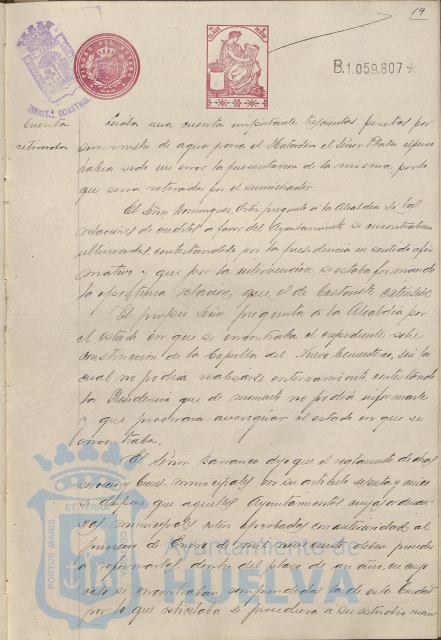 19
TIMBRE DEL ESTADO
B.1.059.807
Cuenta
retirada
Leida una cuenta importante trescientos pesetas por
suministro de agua para el Matadero el Señor Plata expuso
habia sido un error la presentacion de la misma, por lo
que seria retirada por el suministrador
El Señor Dominguez Ortiz pregunto á la Alcaldia si las
relaciones de creditos a favor del Ayuntamiento se encontraban
ultimadas, contestandole por la presidencia en sentido afir
mativo y que por la intervencion se estaba formando
la oportuna relacion, que el de
El propio Señor pregunta á la Alcaldia por
el estado en que se encontraba el expediente sobre
construccion de la Capilla del Nuevo Cementerio, sin la
cual no podria realizarse enterramiento, contestando
la Presidencia que de momento no podia informarle
y que procuraria averiguar el estado en que se
encontraba.
El Señor Barranco dijo que el reglamento de obras
servicios y bienes municipales en su articulo sesenta y
se dispone que aquellos Ayuntamientos cuyas ordenan-
zas municipales estén aprobadas con anterioridad al
primero de Enero de mil novecientos deben proceder
a reformarlas dentro del plazo de un año, en cuyo
caso se encontraban comprendidas las de esta Ciudad
por lo que solicitaba se procediera a su estudio cuan-
PORTUS MARIS
ET TERRÆ
CUSTODIA
Ayuntamiento de
HUELVA